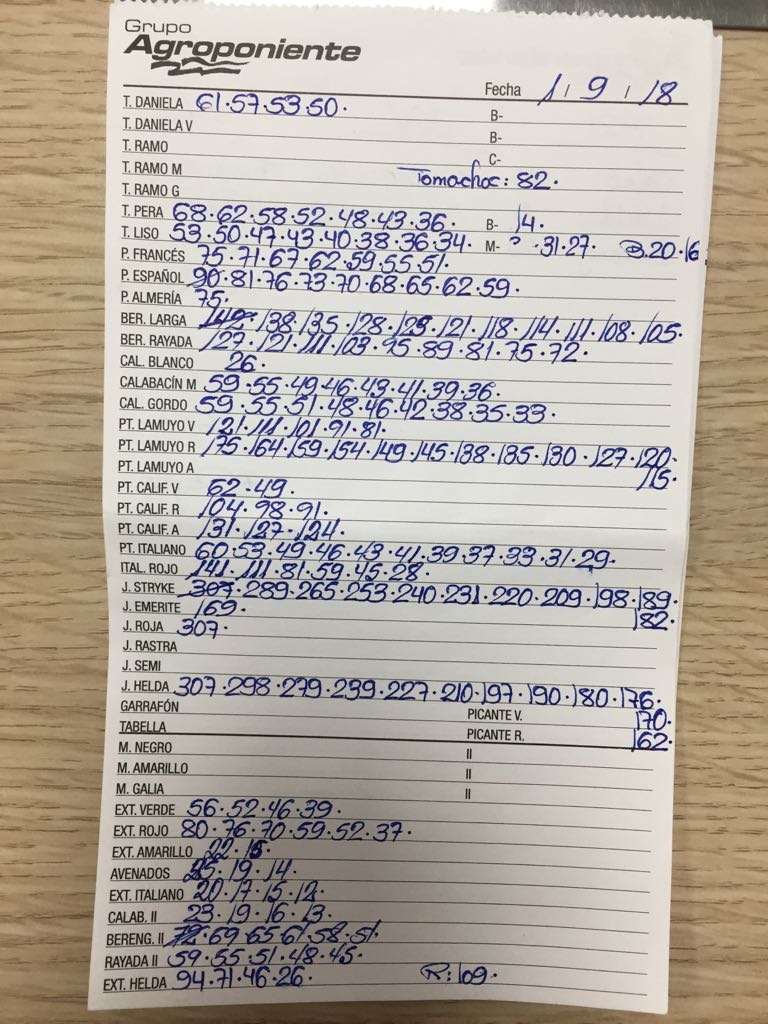 Grupo
Agroponiente
Fecha 1 / 9 / 18
T. DANIELA 61·57·53·50· B-
T. DANIELA V B-
T. RAMO C-
T. RAMO M Tomachoc: 82·
T. RAMO G
T. PERA 68·62·58·52·48·43·36· B- 14·
T. LISO 53·50·47·43·40·38·36·34· M- ·31·27· B.20·16
P. FRANCÉS 75·71·67·62·59·55·51·
P. ESPAÑOL 90·81·76·73·70·68·65·62·59·
P. ALMERÍA 75·
BER. LARGA 142·138·135·128·125·121·118·114·111·108·105·
BER. RAYADA 127·121·111·103·95·89·81·75·72·
CAL. BLANCO 26·
CALABACÍN M 59·55·49·46·43·41·39·36·
CAL. GORDO 59·55·51·48·46·42·38·35·33·
PT. LAMUYO V 121·111·101·91·81·
PT. LAMUYO R 175·164·159·154·149·145·138·135·130·127·120·
PT. LAMUYO A 115·
PT. CALIF. V 62·49·
PT. CALIF. R 104·98·91·
PT. CALIF. A 131·127·124·
PT. ITALIANO 60·53·49·46·43·41·39·37·33·31·29·
ITAL. ROJO 141·111·81·59·45·28·
J. STRYKE 307·289·265·253·240·231·220·209·198·189·
J. EMERITE 169· 182·
J. ROJA 307·
J. RASTRA
J. SEMI
J. HELDA 307·298·279·239·227·210·197·190·180·176·
GARRAFÓN PICANTE V. 170·
TABELLA PICANTE R. 162·
M. NEGRO II
M. AMARILLO II
M. GALIA II
EXT. VERDE 56·52·46·39·
EXT. ROJO 80·76·70·59·52·37·
EXT. AMARILLO 22·15·
AVENADOS 25·19·14·
EXT. ITALIANO 20·17·15·12·
CALAB. II 23·19·16·13·
BERENG. II 72·69·65·61·58·51·
RAYADA II 59·55·51·48·45·
EXT. HELDA 94·71·46·26· R: 109·